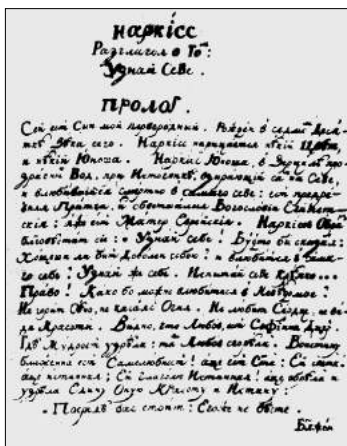 НАРКІСС
Разглагол о То̂м:
Узнай Себе.
ПРОЛОГ.
Сей ест Сын мой первородный. Рожден в седмом Десят-
ке Века сего. Наркісс нарицается некій Цвѣт,
и некій Юноша. Наркісс Юноша, в Зерцалѣ про-
зрачных Вод, при Источникѣ, взирающій сам на Себе,
и влюбившійся смертно в самаго себе: ест предрев-
няя Притча, из обетшалыя Богословіи Египет-
скія: яже ест Матер Еврейскія. Наркісов Образ
благовѣстит сіе: Узнай себе! Бутто бы сказал:
Хощеш ли быт Доволен собою: и влюбится в само-
го себе? Узнай же себе. Испытай себе крѣпко...
Право! Како бо можно влюбится в Невѣдомое?
Не горит Сѣно, не касаяс Огня. Не любит Сердце, не ви-
дя Красоты. Видно, что Любов, ест Софіина Дщер.
Гдѣ Мудрость узрѣла: там Любов сгорѣла. Воистину
блаженна ест Самолюбност: аще ест Свята: Ей свята:
аще истинная: Ей глаголю Истинная: аще обрѣла и
узрѣла Едину Оную Красоту и Истину:
Посредѣ вас стоит: Егоже не вѣсте.
Блажен